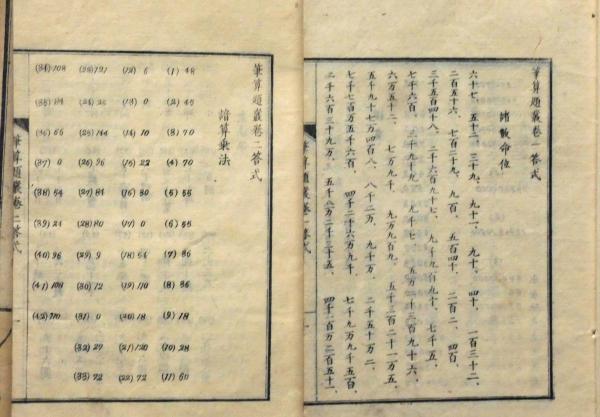 筆算題叢卷一答式
諸數命位
六十七、五十二、三十九、九十一、九十、四十、一百三十二、
二百五十六、七百二十九、九百、五百四十、二百二、四百、
三千五百四十八、二千六百九十七、九千九百九十、七千五、
七千六百、三千九十九、九千七、五万二千三百九十六、
六万五十二、七万九千、九万九百九、五千二百二十一万五、
五千九十七万四百八、八千二万、九千万、二千五十万二、
七千七百万五千六百、四千二十六万九千、七千九万九千五百、
二千六百三十九万、五千八万二千三十五、四千一百万二百五十二、
筆算題叢卷一答式
筆算題叢卷二答式
諳算乗法
(1) 48
(2) 45
(3) 70
(4) 70
(5) 55
(6) 55
(7) 36
(8) 36
(9) 18
(10) 28
(11) 60
(12) 6
(13) 0
(14) 10
(15) 22
(16) 30
(17) 0
(18) 54
(19) 110
(20) 18
(21) 120
(22) 72
(23) 121
(24)
(25) 144
(26) 96
(27) 81
(28) 80
(29) 9
(30) 12
(31) 0
(32) 27
(33) 72
(34) 108
(35) 84
(36) 66
(37) 0
(38) 54
(39) 24
(40) 96
(41) 108
(42) 110
筆算題叢卷二答式